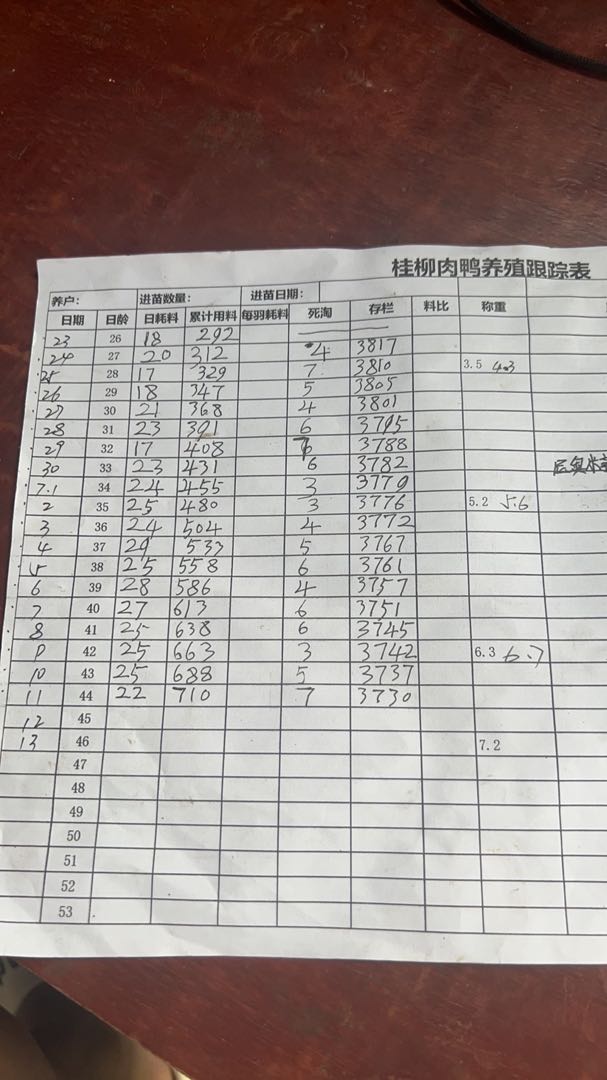 桂柳肉鸭养殖跟踪表
养户: 进苗数量: 进苗日期:
日期 日龄 日耗料 累计用料 每羽耗料 死淘 存栏 料比 称重
23 26 18 292
24 27 20 312 4 3817
25 28 17 329 7 3810 3.5 4.3
26 29 18 347 5 3805
27 30 21 368 4 3801
28 31 23 391 6 3795
29 32 17 408 3788
30 33 23 431 6 3782
7.1 34 24 455 3 3779
2 35 25 480 3 3776 5.2 5.6
3 36 24 504 4 3772
4 37 29 533 5 3767
5 38 25 558 6 3761
6 39 28 586 4 3757
7 40 27 613 6 3751
8 41 25 638 6 3745
9 42 25 663 3 3742 6.3 6.7
10 43 25 688 5 3737
11 44 22 710 7 3730
12 45
13 46 7.2
47
48
49
50
51
52
53